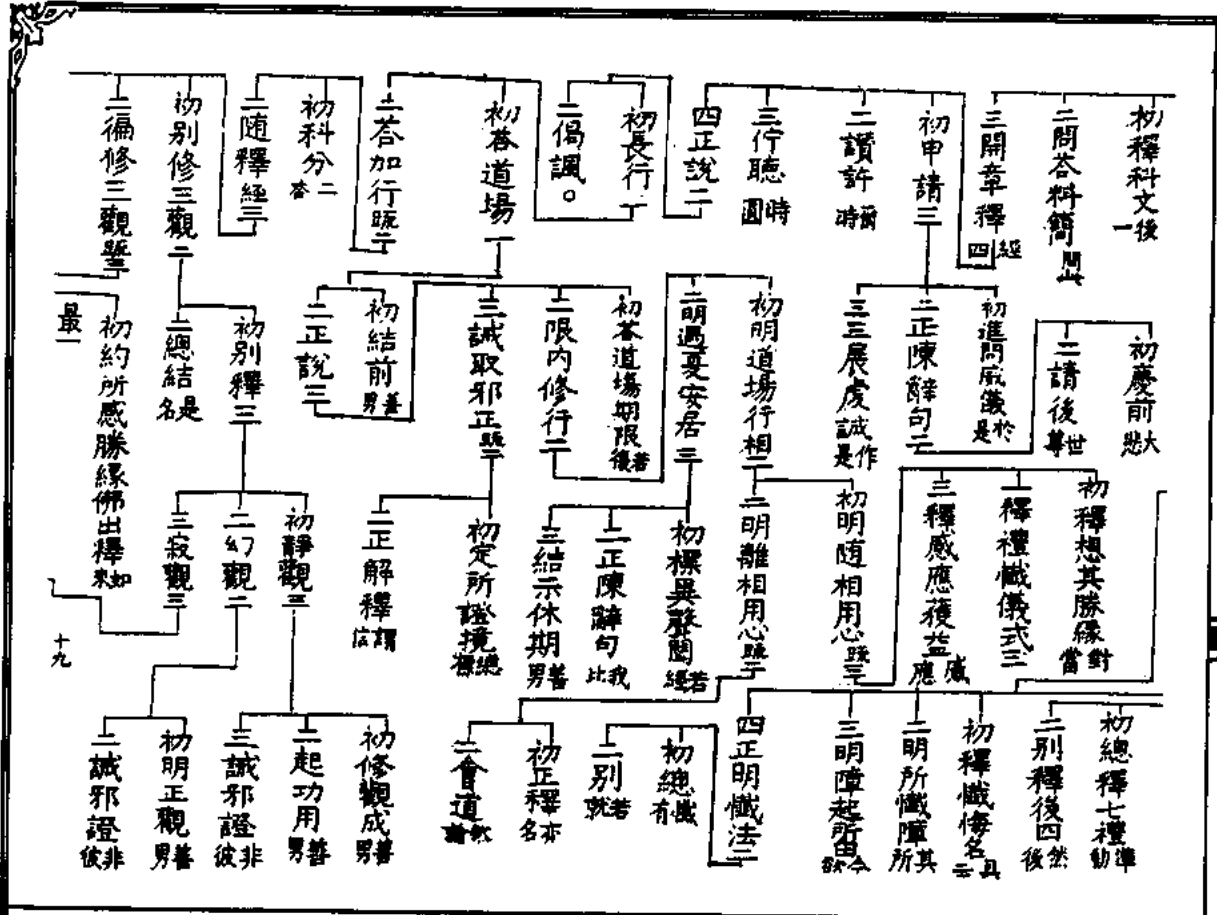 初釋科文一後
二問答料簡
三開章釋四經
初申請三
二讚許時爾
三佇聽圓時
四正說二
初長行一
二偈諷。
初答道場一
二答加行二
初科分二
二隨釋經三
初別修三觀二
二徧修三觀
初慶前悲大
二請後尊世
初進問威儀是於
二正陳辭句二
三三展虔誠是作
初明道場行相二
二明遇夏安居三
初答道場期限後若
二限內修行二
三誡取邪正
初結前男善
二正說三
初別釋三
二總結名是
初約所感勝緣佛出釋來如
最一
初釋想其勝緣當對
二釋禮懺儀式三
三釋感應獲益應感
初明随相用心
二明離相用心
初標異聲聞經若
二正陳辭句比我
三結示休期男善
初定所證境標總
二正解釋信謂
初靜觀三
二幻觀二
三寂觀三
十九
初總釋七禮勸準
二別釋後四後然
初釋懺悔名
二明所懺障所其
三明障起所由欲今
四正明懺法二
初總有懺
二別就若
初正釋名亦
二會道
初修觀成男善
二起功用男善
三誡邪證彼非
初明正觀男善
二誡邪證彼非